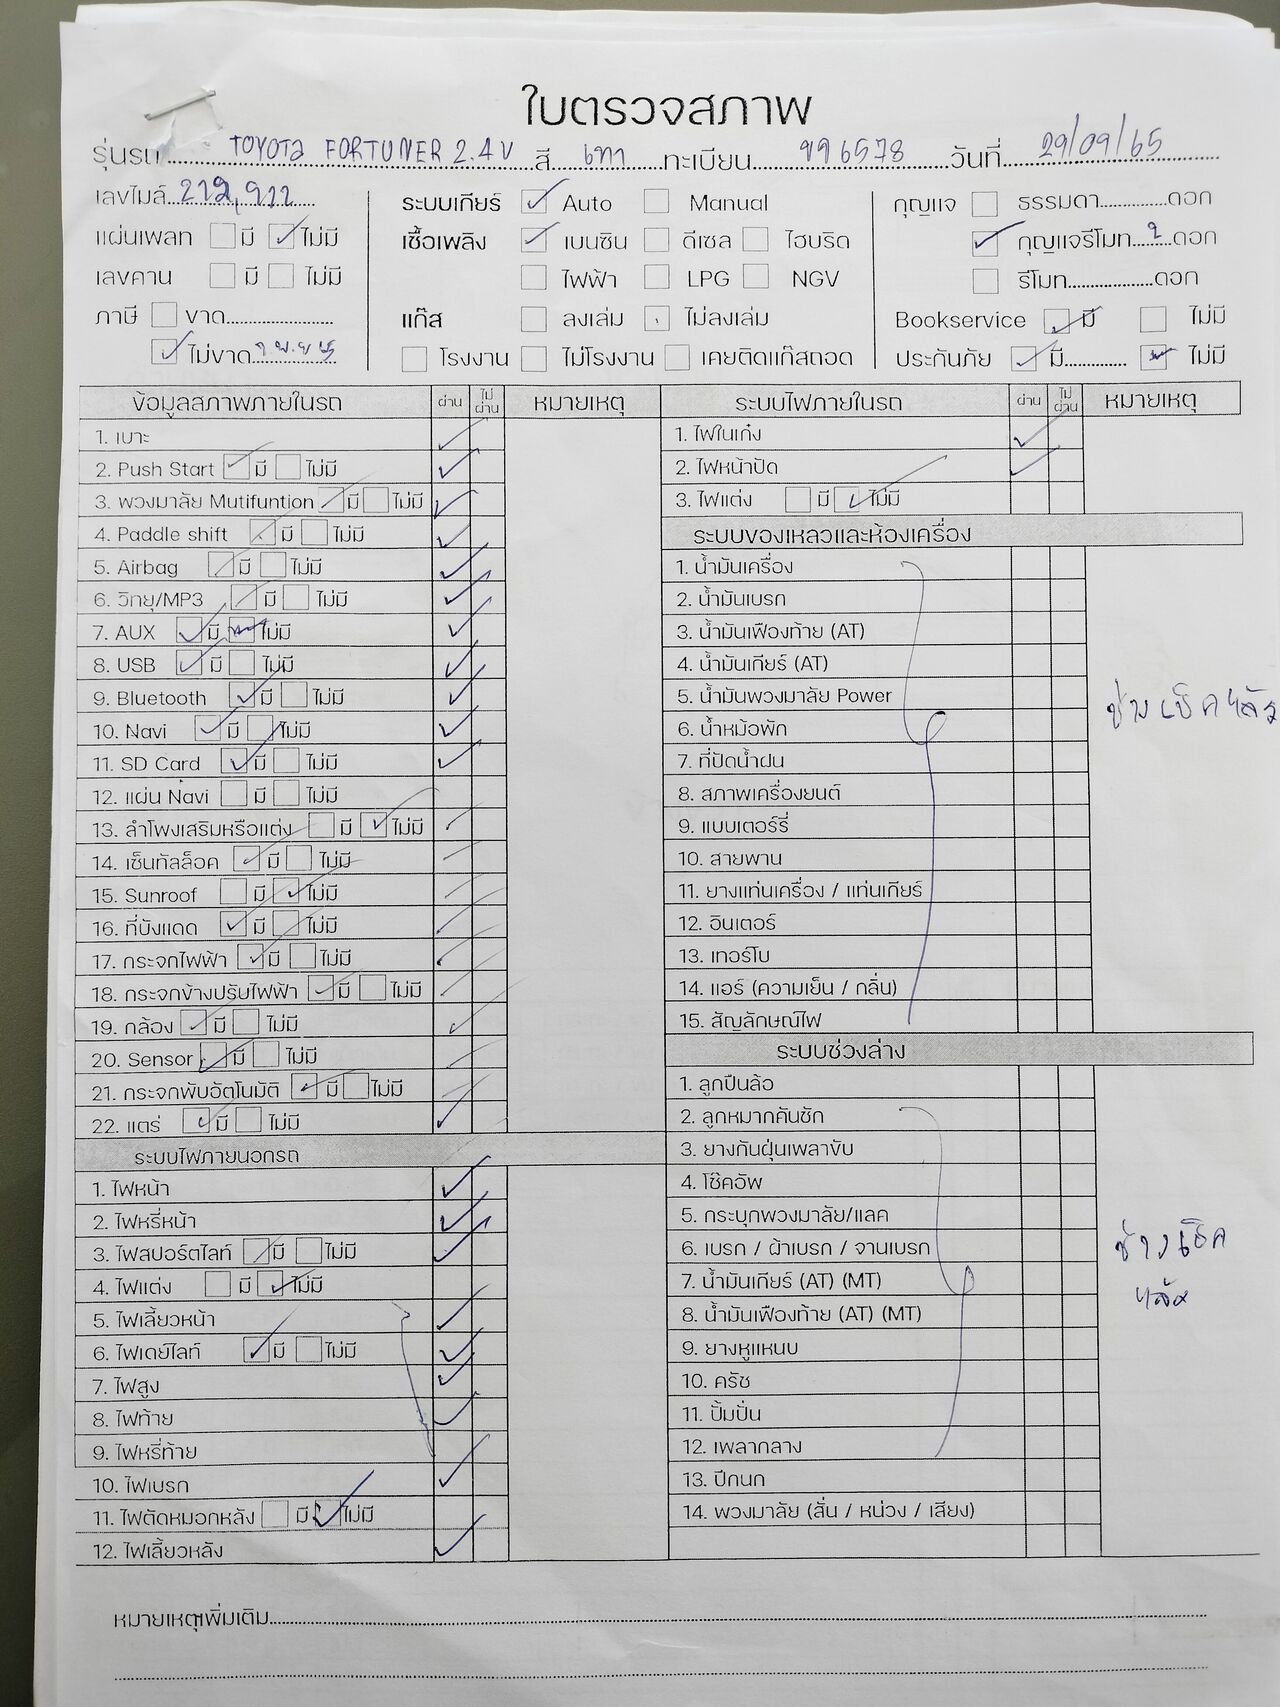 ใบตรวจสภาพ
รุ่นรถ TOYOTA FORTUNER 2.4 V สี เทา ทะเบียน 6578 วันที่ 29/09/65
เลขไมล์
ระบบเกียร์ Auto Manual
กุญแจ ธรรมดา ดอก
แผ่นเพลท มี ไม่มี
เชื้อเพลิง เบนซิน ดีเซล ไฮบริด
กุญแจรีโมท 2 ดอก
เลขคาน มี ไม่มี
ไฟฟ้า LPG NGV
รีโมท ดอก
ภาษี ขาด
แก๊ส ลงเล่ม ไม่ลงเล่ม
Bookservice มี ไม่มี
ไม่ขาด
โรงงาน ไม่โรงงาน เคยติดแก๊สถอด
ประกันภัย มี ไม่มี
ข้อมูลสภาพภายในรถ ผ่าน ไม่ผ่าน หมายเหตุ
1. เบาะ
2. Push Start มี ไม่มี
3. พวงมาลัย Mutifuntion มี ไม่มี
4. Paddle shift มี ไม่มี
5. Airbag มี ไม่มี
6. วิทยุ/MP3 มี ไม่มี
7. AUX มี ไม่มี
8. USB มี ไม่มี
9. Bluetooth มี ไม่มี
10. Navi มี ไม่มี
11. SD Card มี ไม่มี
12. แผ่น Navi มี ไม่มี
13. ลำโพงเสริมหรือแต่ง มี ไม่มี
14. เซ็นทัลล็อค มี ไม่มี
15. Sunroof มี ไม่มี
16. ที่บังแดด มี ไม่มี
17. กระจกไฟฟ้า มี ไม่มี
18. กระจกข้างปรับไฟฟ้า มี ไม่มี
19. กล้อง มี ไม่มี
20. Sensor มี ไม่มี
21. กระจกพับอัตโนมัติ มี ไม่มี
22. แตร่ มี ไม่มี
ระบบไฟภายนอกรถ
1. ไฟหน้า
2. ไฟหรี่หน้า
3. ไฟสปอร์ตไลท์ มี ไม่มี
4. ไฟแต่ง มี ไม่มี
5. ไฟเลี้ยวหน้า
6. ไฟเดย์ไลท์ มี ไม่มี
7. ไฟสูง
8. ไฟท้าย
9. ไฟหรี่ท้าย
10. ไฟเบรก
11. ไฟตัดหมอกหลัง มี ไม่มี
12. ไฟเลี้ยวหลัง
ระบบไฟภายในรถ ผ่าน ไม่ผ่าน หมายเหตุ
1. ไฟในเก๋ง
2. ไฟหน้าปัด
3. ไฟแต่ง มี ไม่มี
ระบบของเหลวและห้องเครื่อง
1. น้ำมันเครื่อง
2. น้ำมันเบรก
3. น้ำมันเฟืองท้าย (AT)
4. น้ำมันเกียร์ (AT)
5. น้ำมันพวงมาลัย Power
6. น้ำหม้อพัก
ช่างเช็คแล้ว
7. ที่ปัดน้ำฝน
8. สภาพเครื่องยนต์
9. แบบเตอร์รี่
10. สายพาน
11. ยางแท่นเครื่อง / แท่นเกียร์
12. อินเตอร์
13. เทอร์โบ
14. แอร์ (ความเย็น / กลิ่น)
15. สัญลักษณ์ไฟ
ระบบช่วงล่าง
1. ลูกปืนล้อ
2. ลูกหมากคันชัก
3. ยางกันฝุ่นเพลาขับ
4. โช๊คอัพ
5. กระบุกพวงมาลัย/แลค
6. เบรก / ผ้าเบรก / จานเบรก
ช่างเช็ค
7. น้ำมันเกียร์ (AT) (MT)
แล้ว
8. น้ำมันเฟืองท้าย (AT) (MT)
9. ยางหูแหนบ
10. ครัช
11. ปั้มปั่น
12. เพลากลาง
13. ปีกนก
14. พวงมาลัย (สั่น / หน่วง / เสียง)
หมายเหตุเพิ่มเติม